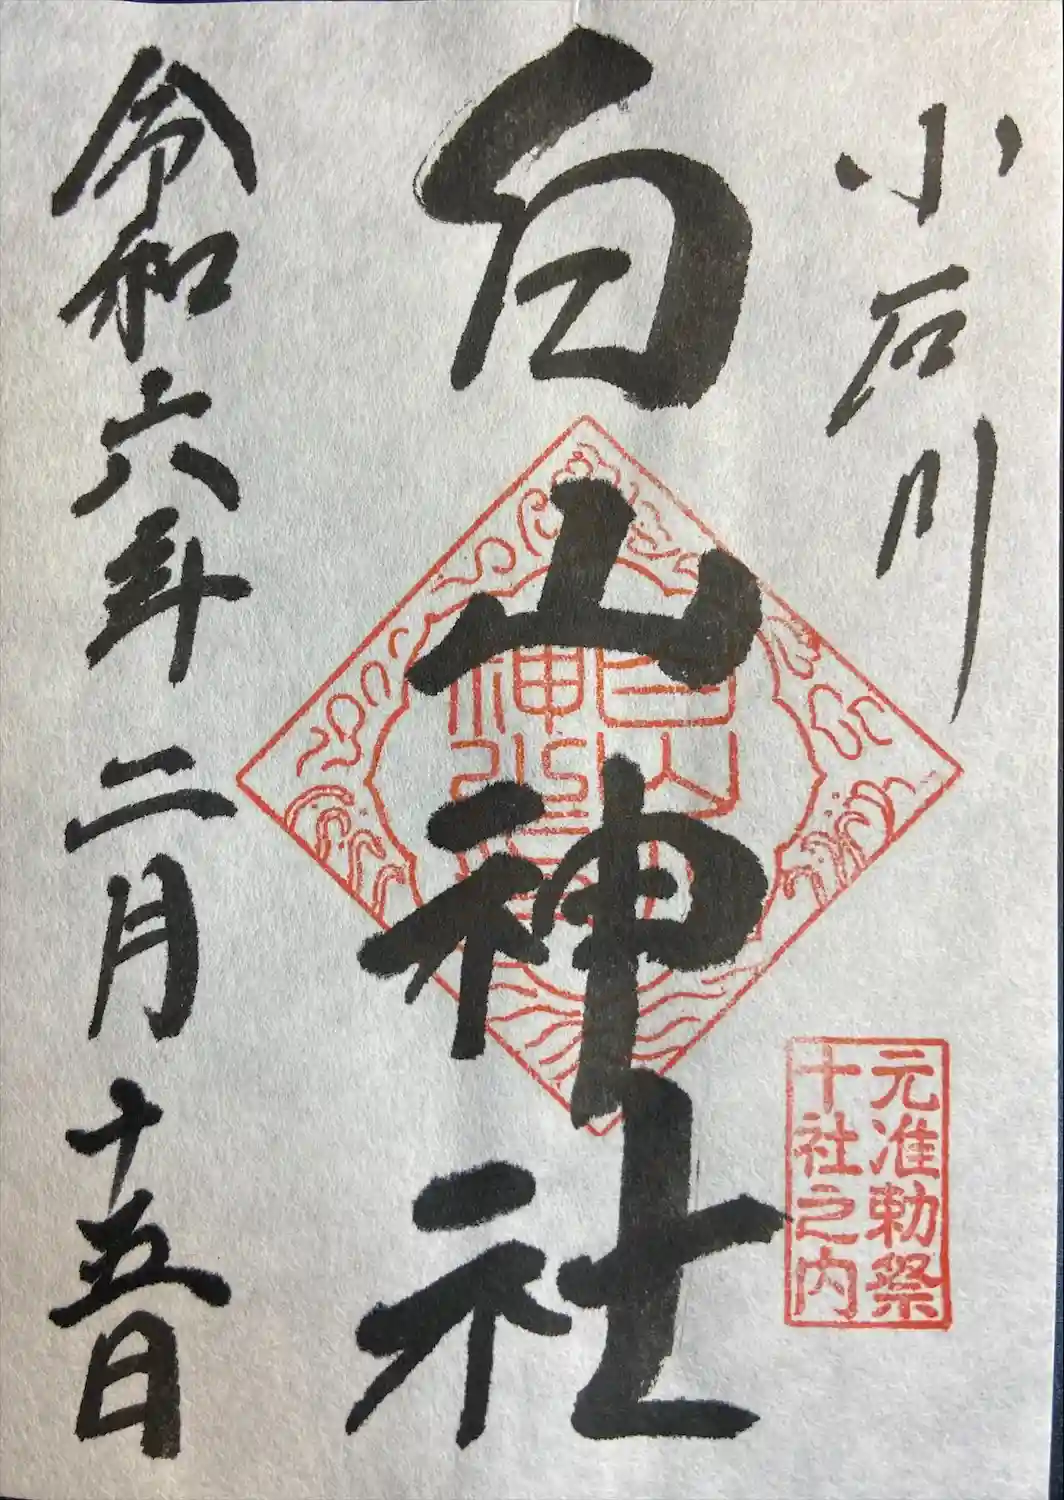 小石川
白山神社
令和六年二月十五日
元准勅祭
十社之内